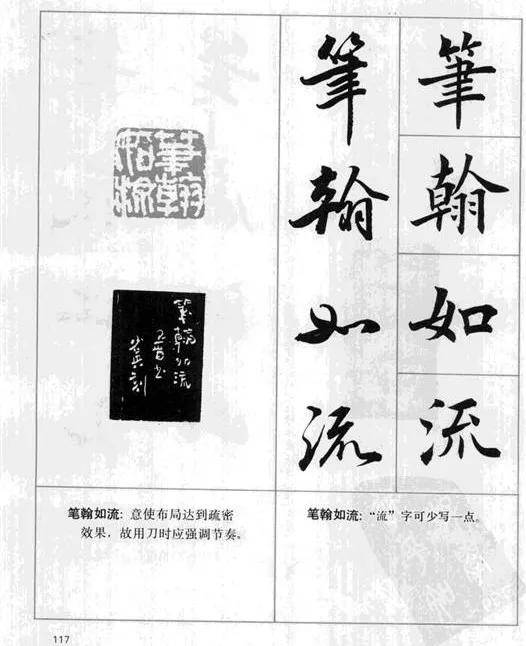 筆翰如流
筆翰如流
筆翰如流
筆翰如流
笔翰如流：意使布局达到疏密
效果，故用刀时应强调节奏。
笔翰如流：“流”字可少写一点。
117